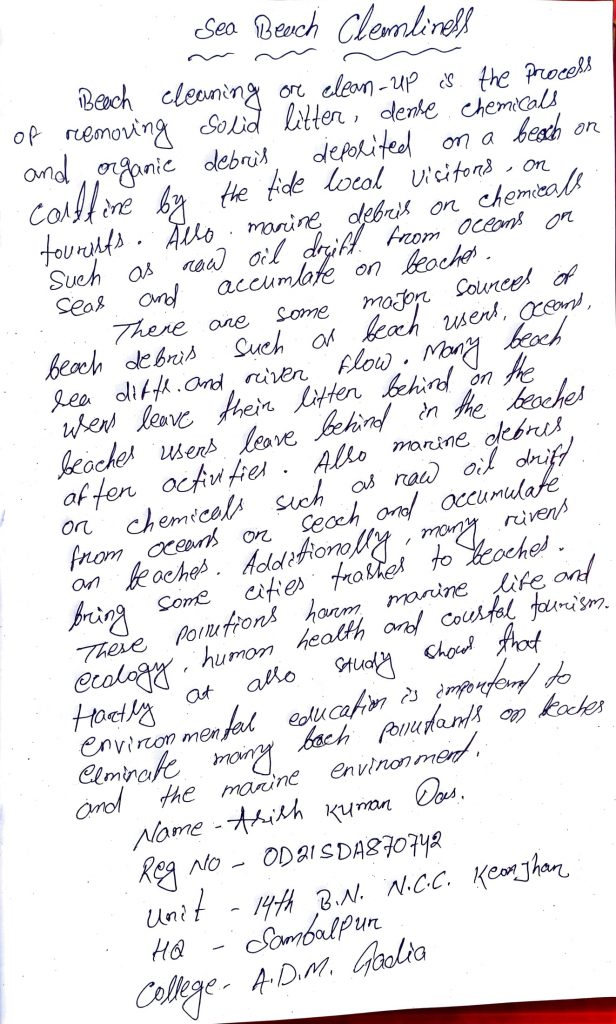 Sea Beach Cleanliness
Beach cleaning or clean-up is the process
of removing solid litter, dense chemicals
and organic debris deposited on a beach or
coastline by the tide local visitors, or
tourists. Also marine debris or chemicals
such as raw oil drift from oceans or
seas and accumlate on beaches.
There are some major sources of
beach debris such as beach users, oceans,
sea difts. and river flow. Many beach
users leave their litter behind on the
beaches users leave behind in the beaches
after activities. Also marine debris
or chemicals such as raw oil drift
from oceans or seach and accumulate
on beaches. Additionally, many rivers
bring some cities trashes to beaches.
These pollutions harm marine life and
ecology, human health and coustal tourism.
Hartly at also study shows that
environmental education is important to
elminate many bach pollutants on beaches
and the marine environment.
Name - Asish Kumar Das.
Reg No - OD21SDA870742
Unit - 14th B.N. N.C.C. Keonjhar
HQ - Sambalpur
College - A.D.M. Gadia